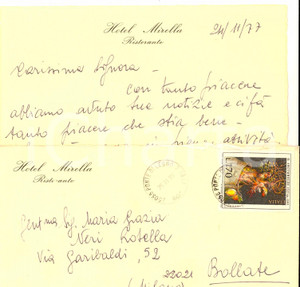 Hotel Mirella
Ristorante
24/11/77
Carissima Signora -
con tanto piacere
abbiamo avuto sue notizie e ci fà
tanto piacere che stia bene -
attività
Hotel Mirella
Ristorante
ITALIA
L.170
Gent.ma Sig. Maria Grazia
Neri Rotella
Via Garibaldi, 52
Bollate
(Milano)